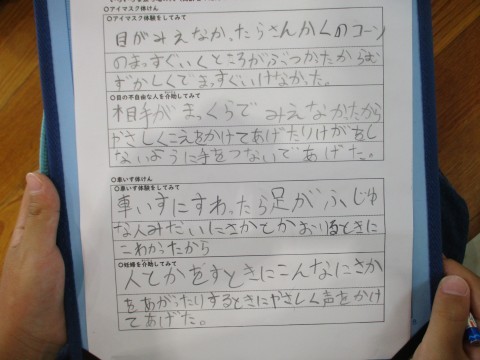 ○アイマスク体けん
○アイマスク体験をしてみて
目がみえなかったらさんかくのコーン
のまっすぐいくところがぶつかたからむ
ずかしくてまっすぐいけなかった。
○目の不自由な人を介助してみて
相手がまっくらで みえなかたから
やさしくこえをかけてあげたりけがをし
ないように手をつないであげた。
○車いす体けん
○車いす体験をしてみて
車いすにすわったら足がふじゆ
な人みたいにさかとかおりるときに
こわかたから
人とかをすときにこんなにさか
をあがったりするときにやさしく声をかけ
てあげた。